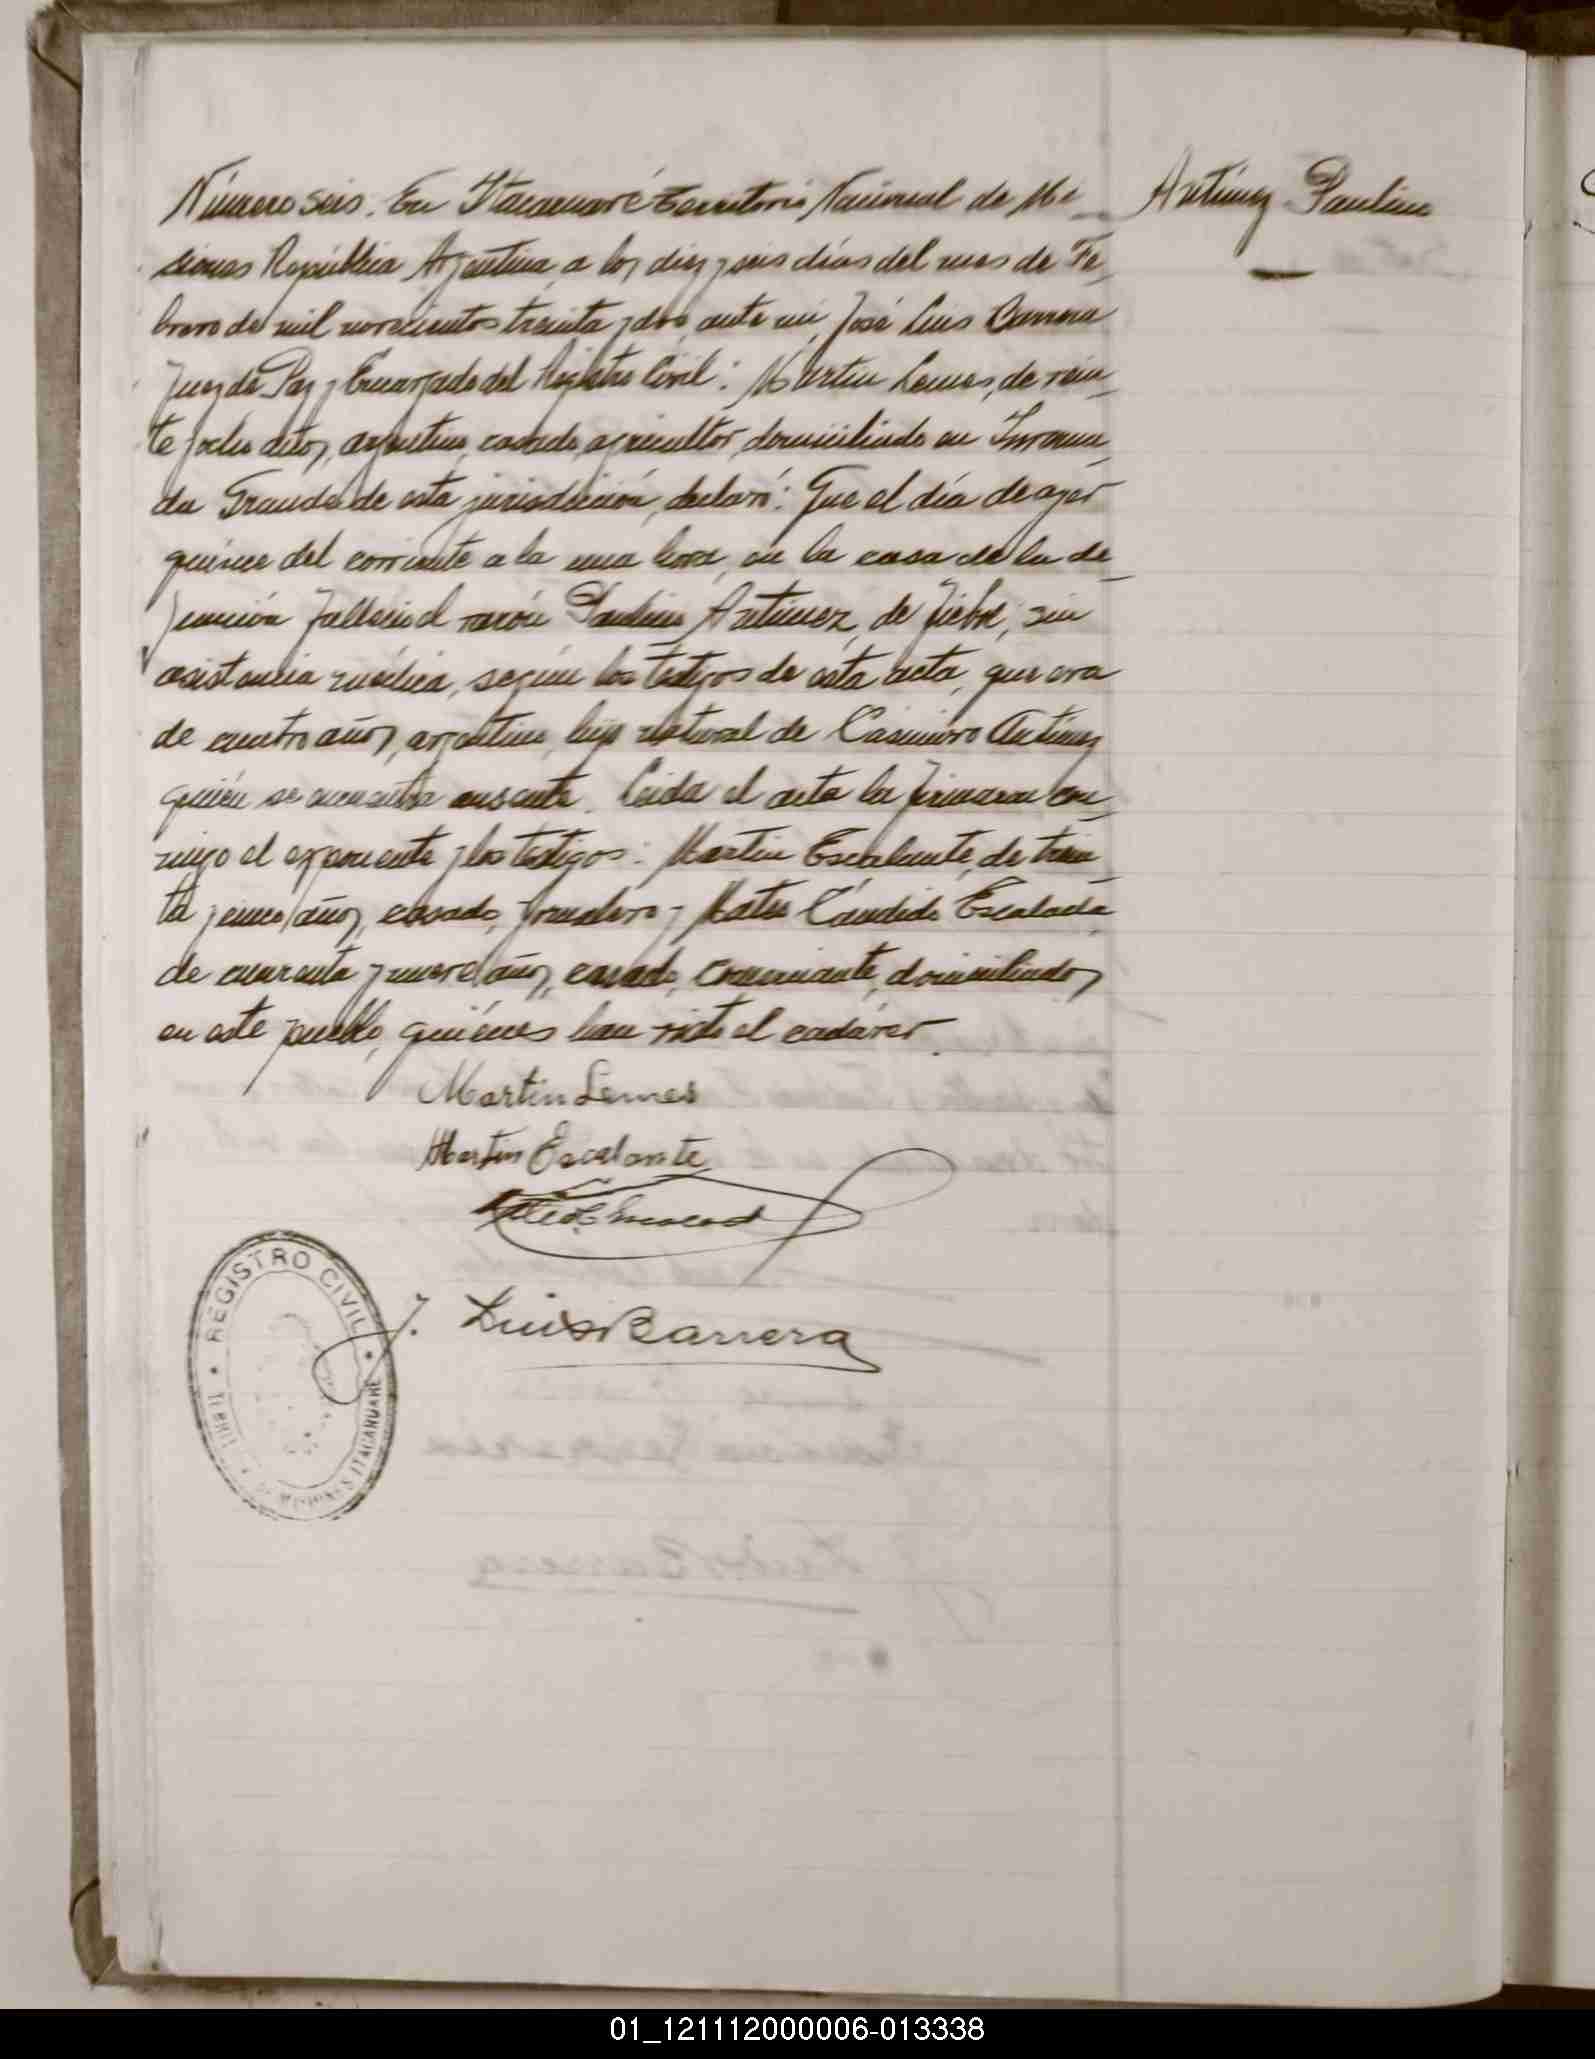 Número seis. En Itacaruaré Territorio Nacional de Mi-
siones República Argentina a los diez y seis días del mes de Fe-
brero de mil novecientos treinta y dos, ante mi, José Luis Barrera
Juez de Paz y Encargado del Registro Civil: Martin Lemes, de vein-
te y ocho años, argentino, casado, agricultor, domiciliado en
da Grande de esta jurisdicción, declaró: Que el día de ayer
quince del corriente a la una hora, en la casa de la de-
función falleció el varón Paulino Antúnez, de fiebre, sin
asistencia médica, según los testigos de ésta acta, que era
de cuatro años, argentino, hijo natural de Casimiro Antúnez
quién se encuentra ausente. Leida el acta la firmaron con-
migo el exponente y los testigos: Martin Escalante, de trein-
ta y cinco años, casado, jornalero y Mateo Cándido Escalada
de cuarenta y nueve años, casado, comerciante, domiciliados
en este pueblo, quiénes han visto el cadáver.
Antúnez Paulino
Martin Lemes
Martin Escalante
J. Luis Barrera
REGISTRO CIVIL
MISIONES ITACARUARE
01_121112000006-013338